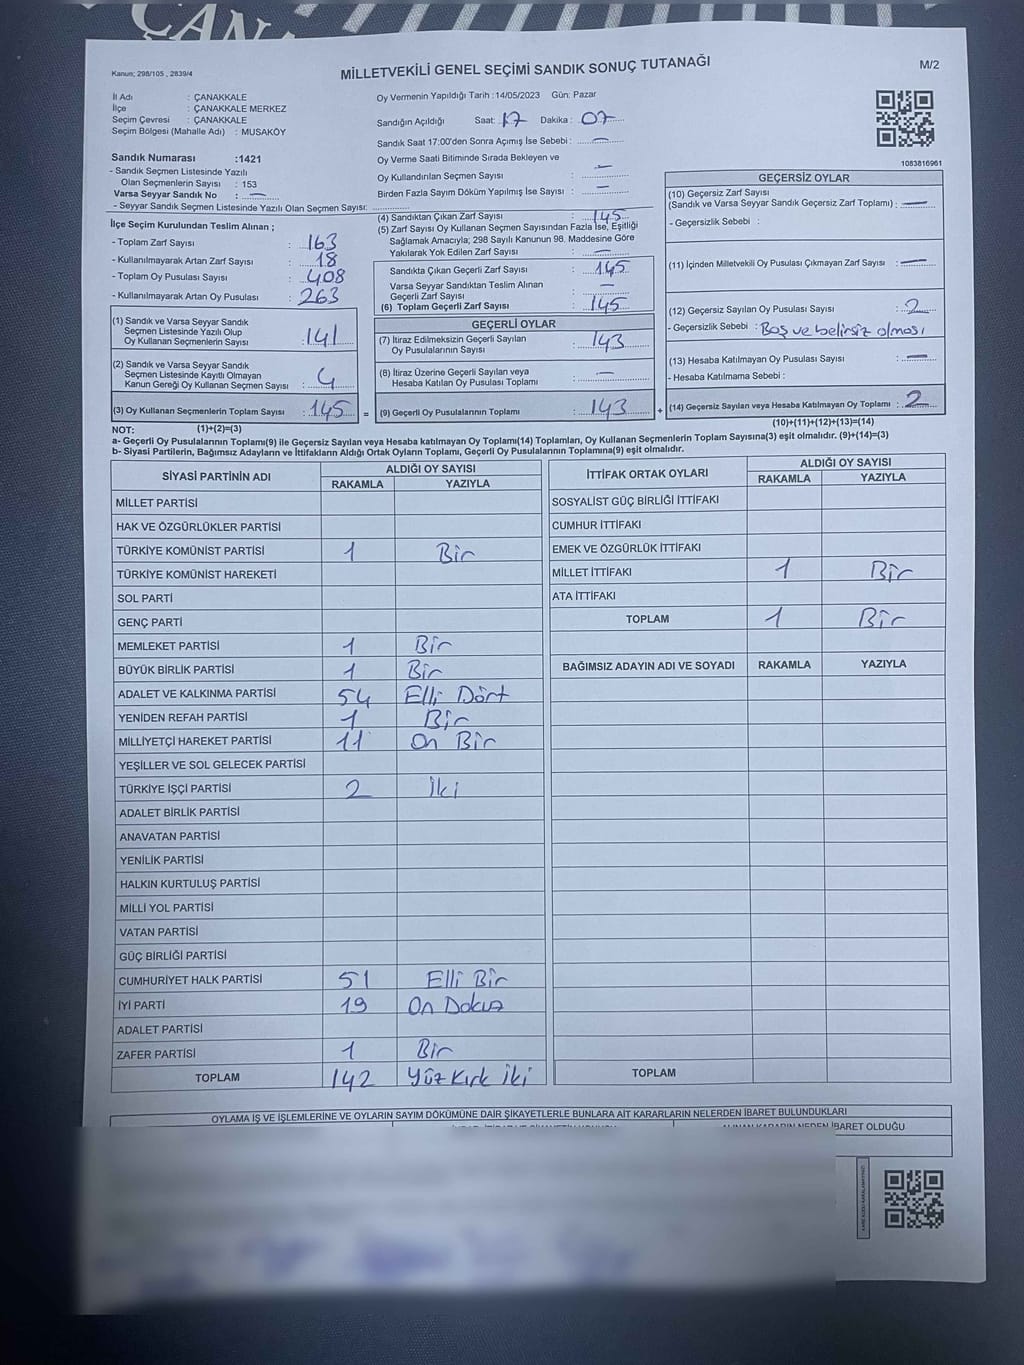 ÇANA
Kanun; 298/105 , 2839/4
MİLLETVEKİLİ GENEL SEÇİMİ SANDIK SONUÇ TUTANAĞI
M/2
İl Adı : ÇANAKKALE
İlçe : ÇANAKKALE MERKEZ
Seçim Çevresi : ÇANAKKALE
Seçim Bölgesi (Mahalle Adı) : MUSAKÖY
Sandık Numarası :1421
- Sandık Seçmen Listesinde Yazılı
Olan Seçmenlerin Sayısı : 153
Varsa Seyyar Sandık No : —
- Seyyar Sandık Seçmen Listesinde Yazılı Olan Seçmen Sayısı:
İlçe Seçim Kurulundan Teslim Alınan ;
- Toplam Zarf Sayısı : 163
- Kullanılmayarak Artan Zarf Sayısı : 18
- Toplam Oy Pusulası Sayısı : 408
- Kullanılmayarak Artan Oy Pusulası : 263
(1) Sandık ve Varsa Seyyar Sandık
Seçmen Listesinde Yazılı Olup
Oy Kullanan Seçmenlerin Sayısı : 141
(2) Sandık ve Varsa Seyyar Sandık
Seçmen Listesinde Kayıtlı Olmayan
Kanun Gereği Oy Kullanan Seçmen Sayısı : 4
(3) Oy Kullanan Seçmenlerin Toplam Sayısı : 145 =
Oy Vermenin Yapıldığı Tarih :14/05/2023 Gün: Pazar
Sandığın Açıldığı Saat: 17 Dakika : 07
Sandık Saat 17:00'den Sonra Açımış İse Sebebi : —
Oy Verme Saati Bitiminde Sırada Bekleyen ve
Oy Kullandırılan Seçmen Sayısı : —
Birden Fazla Sayım Döküm Yapılmış İse Sayısı : —
(4) Sandıktan Çıkan Zarf Sayısı : 145
(5) Zarf Sayısı Oy Kullanan Seçmen Sayısından Fazla İse, Eşitliği
Sağlamak Amacıyla; 298 Sayılı Kanunun 98. Maddesine Göre
Yakılarak Yok Edilen Zarf Sayısı : —
Sandıkta Çıkan Geçerli Zarf Sayısı : 145
Varsa Seyyar Sandıktan Teslim Alınan
Geçerli Zarf Sayısı : —
(6) Toplam Geçerli Zarf Sayısı : 145
GEÇERLİ OYLAR
(7) İtiraz Edilmeksizin Geçerli Sayılan
Oy Pusulalarının Sayısı : 143
(8) İtiraz Üzerine Geçerli Sayılan veya
Hesaba Katılan Oy Pusulası Toplamı : —
(9) Geçerli Oy Pusulalarının Toplamı : 143 +
1083816961
GEÇERSİZ OYLAR
(10) Geçersiz Zarf Sayısı
(Sandık ve Varsa Seyyar Sandık Geçersiz Zarf Toplamı) : —
- Geçersizlik Sebebi :
(11) İçinden Milletvekili Oy Pusulası Çıkmayan Zarf Sayısı : —
(12) Geçersiz Sayılan Oy Pusulası Sayısı : 2
- Geçersizlik Sebebi : Boş ve belirsiz olması
(13) Hesaba Katılmayan Oy Pusulası Sayısı : —
- Hesaba Katılmama Sebebi :
(14) Geçersiz Sayılan veya Hesaba Katılmayan Oy Toplamı : 2
NOT: (1)+(2)=(3)
(10)+(11)+(12)+(13)=(14)
a- Geçerli Oy Pusulalarının Toplamı(9) ile Geçersiz Sayılan veya Hesaba katılmayan Oy Toplamı(14) Toplamları, Oy Kullanan Seçmenlerin Toplam Sayısına(3) eşit olmalıdır. (9)+(14)=(3)
b- Siyasi Partilerin, Bağımsız Adayların ve İttifakların Aldığı Ortak Oyların Toplamı, Geçerli Oy Pusulalarının Toplamına(9) eşit olmalıdır.
SİYASİ PARTİNİN ADI ALDIĞI OY SAYISI
RAKAMLA YAZIYLA
MİLLET PARTİSİ
HAK VE ÖZGÜRLÜKLER PARTİSİ
TÜRKİYE KOMÜNİST PARTİSİ 1 Bir
TÜRKİYE KOMÜNİST HAREKETİ
SOL PARTİ
GENÇ PARTİ
MEMLEKET PARTİSİ 1 Bir
BÜYÜK BİRLİK PARTİSİ 1 Bir
ADALET VE KALKINMA PARTİSİ 54 Elli Dört
YENİDEN REFAH PARTİSİ 1 Bir
MİLLİYETÇİ HAREKET PARTİSİ 11 On Bir
YEŞİLLER VE SOL GELECEK PARTİSİ
TÜRKİYE İŞÇİ PARTİSİ 2 İki
ADALET BİRLİK PARTİSİ
ANAVATAN PARTİSİ
YENİLİK PARTİSİ
HALKIN KURTULUŞ PARTİSİ
MİLLİ YOL PARTİSİ
VATAN PARTİSİ
GÜÇ BİRLİĞİ PARTİSİ
CUMHURİYET HALK PARTİSİ 51 Elli Bir
İYİ PARTİ 19 On Dokuz
ADALET PARTİSİ
ZAFER PARTİSİ 1 Bir
TOPLAM 142 Yüz Kırk İki
İTTİFAK ORTAK OYLARI ALDIĞI OY SAYISI
RAKAMLA YAZIYLA
SOSYALİST GÜÇ BİRLİĞİ İTTİFAKI
CUMHUR İTTİFAKI
EMEK VE ÖZGÜRLÜK İTTİFAKI
MİLLET İTTİFAKI 1 Bir
ATA İTTİFAKI
TOPLAM 1 Bir
BAĞIMSIZ ADAYIN ADI VE SOYADI RAKAMLA YAZIYLA
TOPLAM
OYLAMA İŞ VE İŞLEMLERİNE VE OYLARIN SAYIM DÖKÜMÜNE DAİR ŞİKAYETLERLE BUNLARA AİT KARARLARIN NELERDEN İBARET BULUNDUKLARI
ALINAN KARARIN NEDEN İBARET OLDUĞU